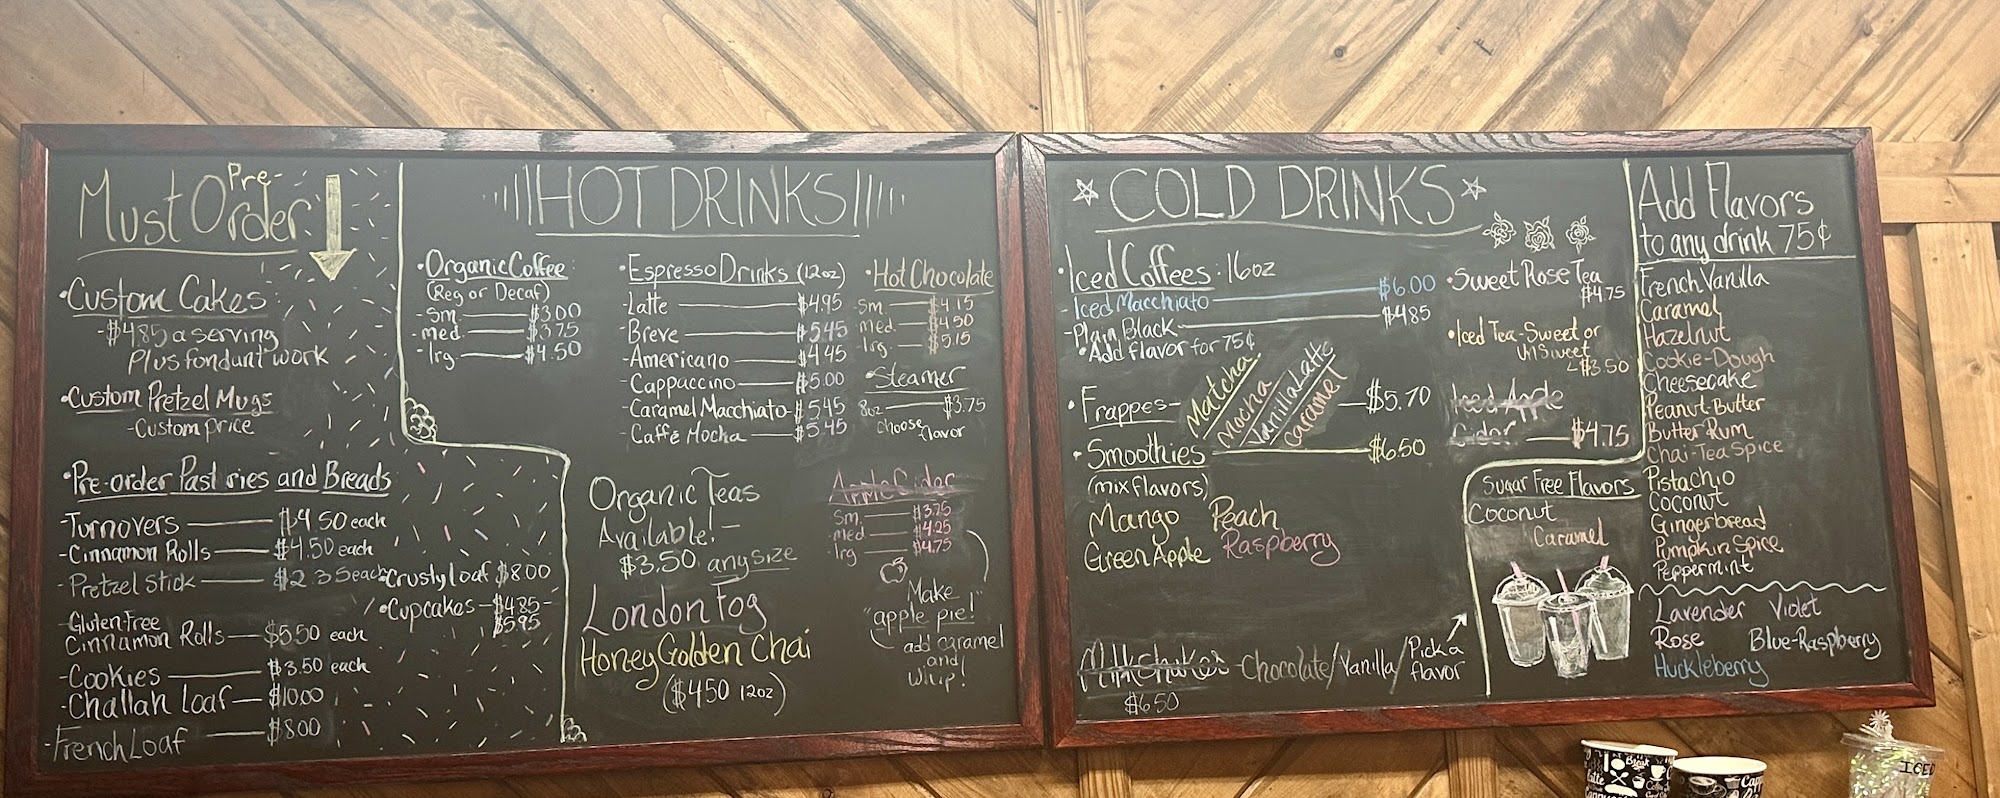 Must Pre-Order
•Custom Cakes
-$4.85 a serving
Plus fondant work
•Custom Pretzel Mugs
-Custom price
•Pre-order Pastries and Breads
-Turnovers $4.50 each
-Cinnamon Rolls $4.50 each
-Pretzel Stick $2.35 each
-Gluten Free
Cinnamon Rolls $5.50 each
-Cookies $3.50 each
-Challah Loaf $10.00
-French Loaf $8.00
•Crusty loaf $8.00
•Cupcakes-$4.85-
$5.95
HOT DRINKS
•Organic Coffee
(Reg or Decaf)
-sm. $3.00
-med. $3.75
-lrg. $4.50
•Espresso Drinks (12oz)
-Latte $4.95
-Breve $5.45
-Americano $4.45
-Cappuccino $5.00
-Caramel Macchiato $5.45
-Caffé Mocha $5.45
•Hot Chocolate
sm. $4.15
med. $4.50
lrg. $5.15
•Steamer
8oz $3.75
choose flavor
Organic Teas
Available!-
$3.50 any size
London Fog
Honey Golden Chai
($4.50 12oz)
Apple Cider
sm. $3.75
med $4.25
lrg $4.75
Make
"apple pie!"
add caramel
and
whip!
COLD DRINKS
•Iced Coffees: 16oz
-Iced Macchiato $6.00
-Plain Black $4.85
•Add flavor for 75¢
•Frappes- Matcha Mocha Vanilla Latte Caramel $5.70
•Smoothies $6.50
(mix flavors)
Mango Peach
Green Apple Raspberry
Milkshakes Chocolate/Vanilla/Pick a flavor
$6.50
•Sweet Rose Tea
$4.75
•Iced Tea-Sweet or
UnSweet
$3.50
Iced Apple
Cider $4.75
Sugar Free Flavors
Coconut
Caramel
Add Flavors
to any drink 75¢
French Vanilla
Caramel
Hazelnut
Cookie-Dough
Cheesecake
Peanut-Butter
Butter Rum
Chai-Tea Spice
Pistachio
Coconut
Gingerbread
Pumpkin Spice
Peppermint
Lavender Violet
Rose Blue-Raspberry
Huckleberry
Break
Latte
ICED